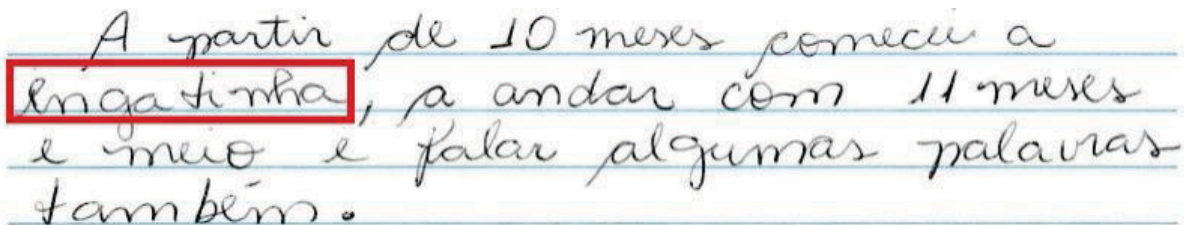 A partir de 10 meses comecei a
engatinha, a andar com 11 meses
e meio e falar algumas palavras
também.